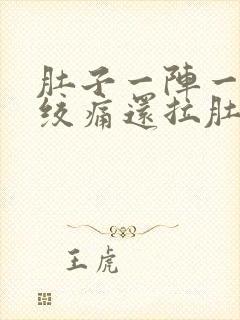 肚子一陣一
絞痛還拉肚
王虎